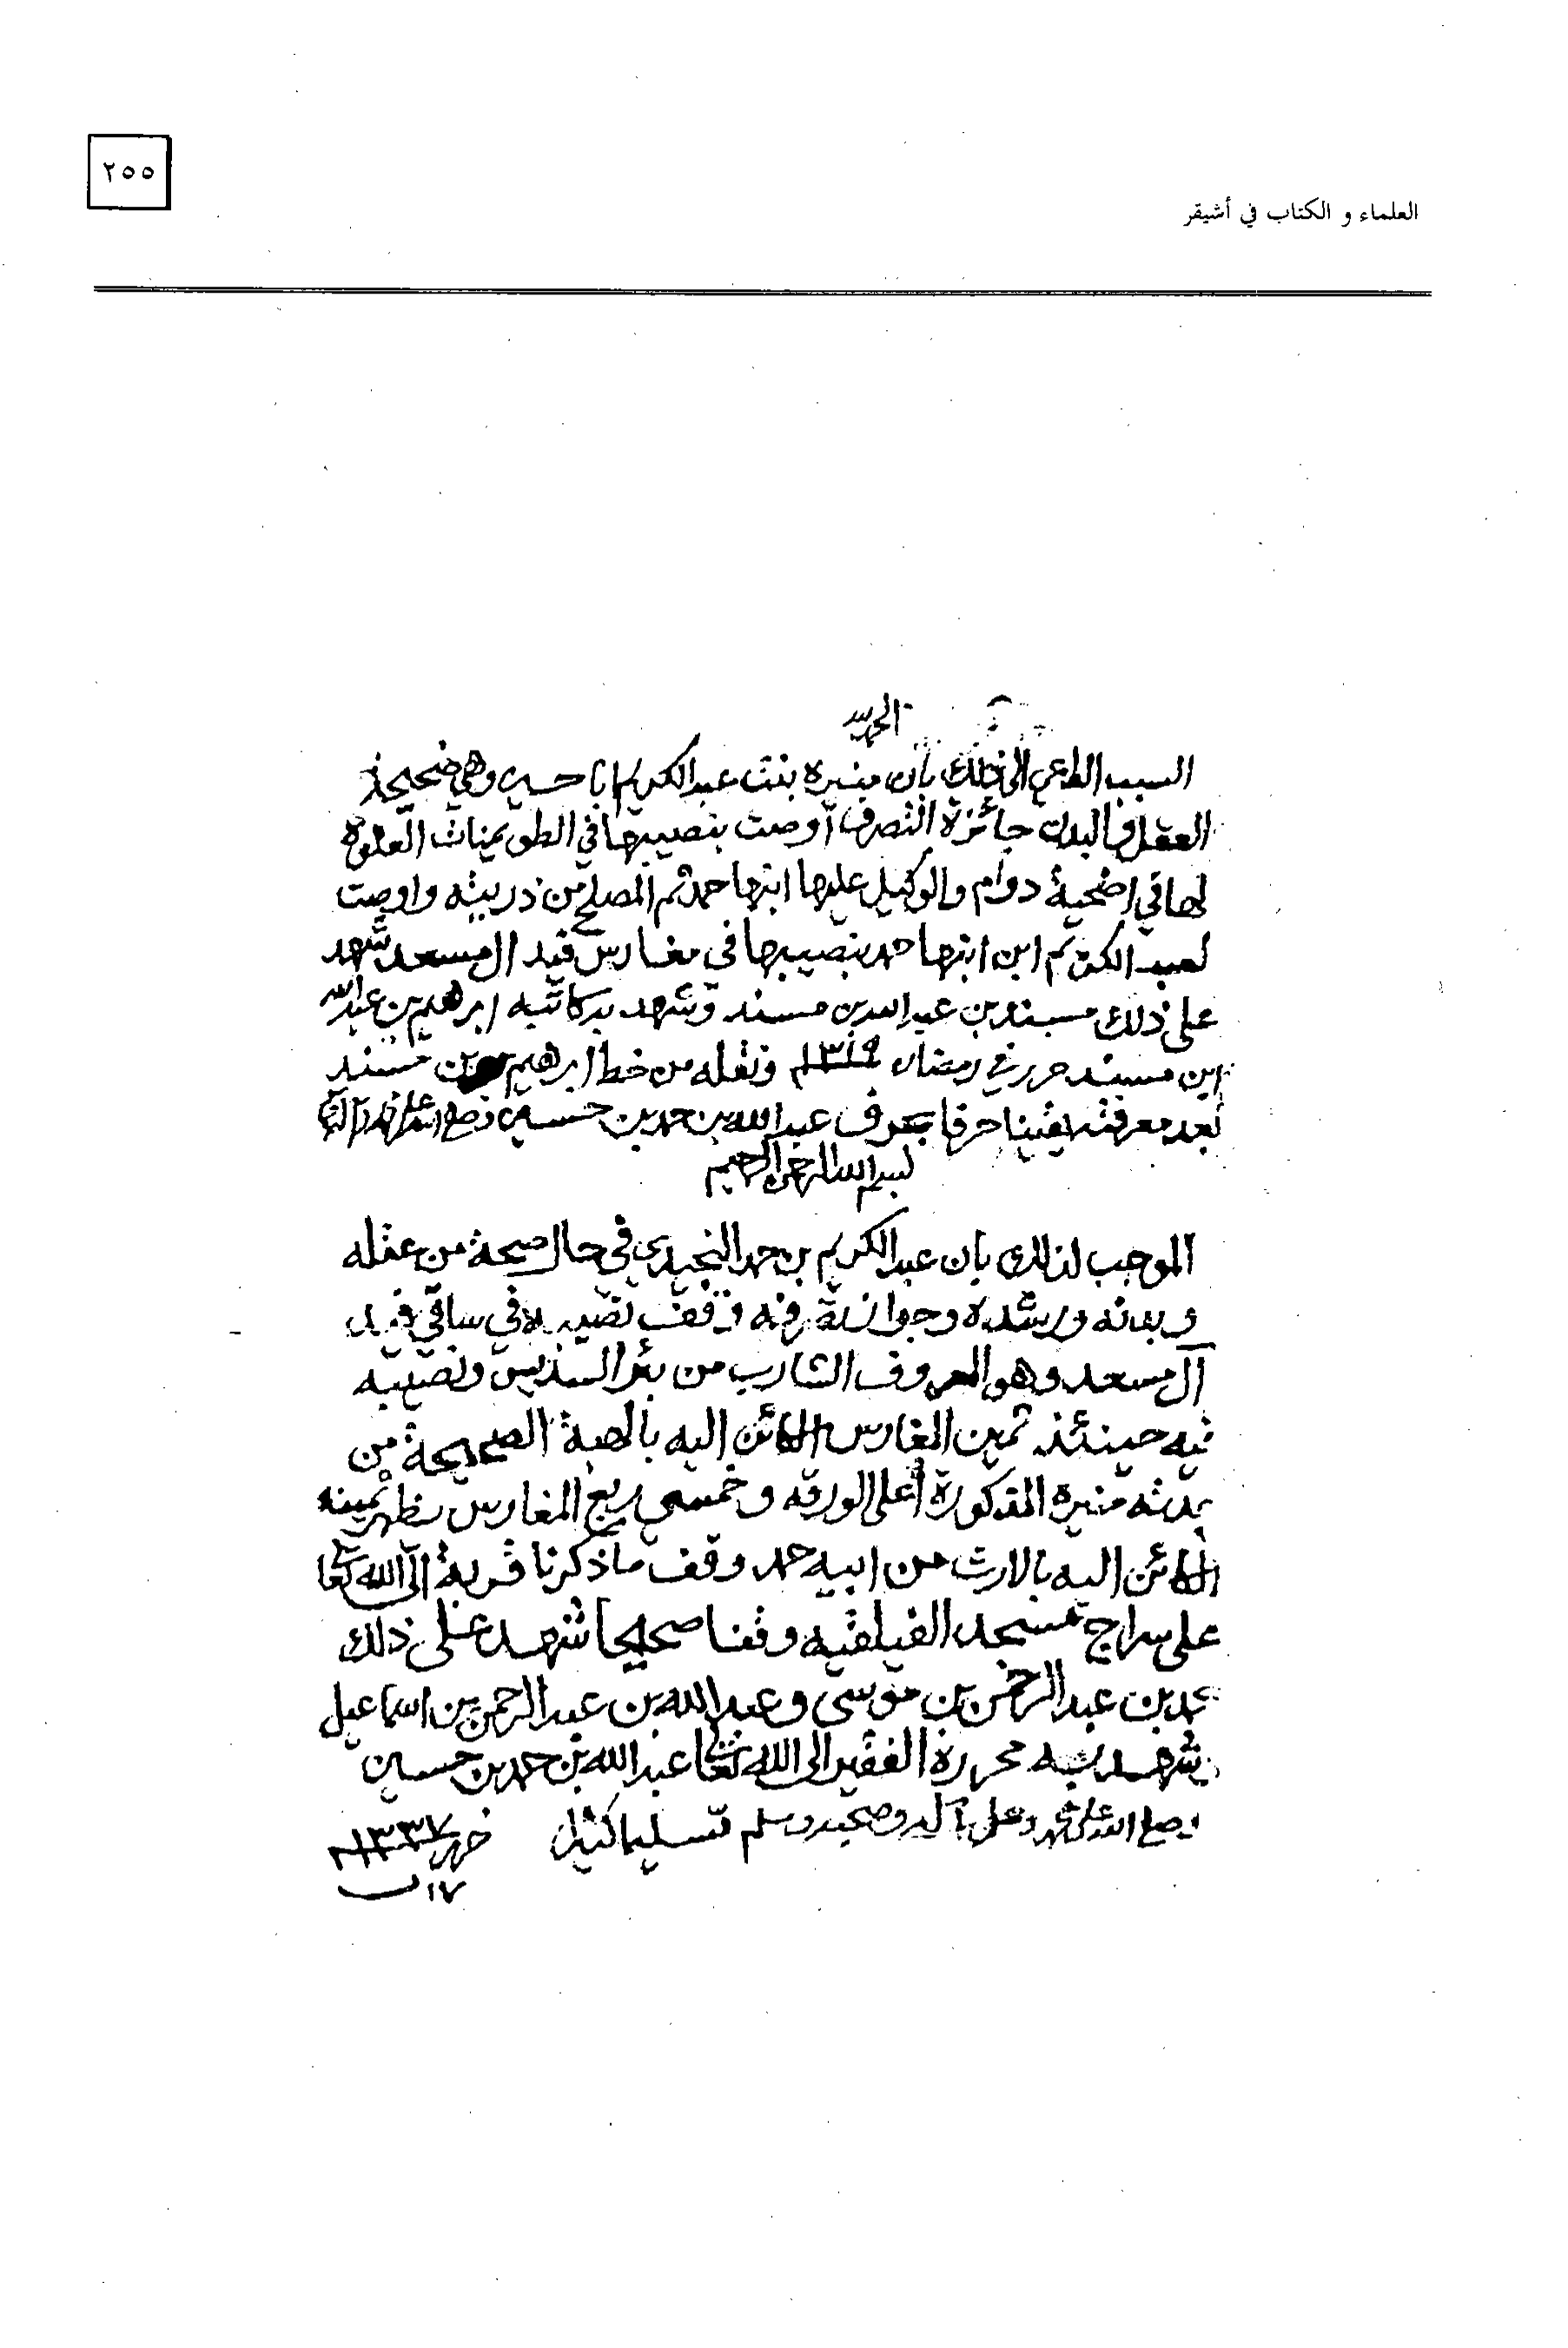 ٢٥٥
العلماء و الكتاب في أشيقر
الحمد لله
السبب الداعي الى ذلك بأن منيره بنت عبدالكريم ابا حسين وهي صحيحة
العقل والبدن جائزة التصرف أوصت بنصيبها في الطويمينات العلوة
لها في اضحية دوام والوكيل عليها ابنها حمد ثم المصلح من ذريته واوصت
لعبد الكريم ابن ابنها حمد بنصيبها في مغارس فيد ال مسعد شهد
على ذلك مسند بن عبدالله بن مسند وشهد به كاتبه ابرهيم بن عبدالله
ابن مسند حرر في رمضان ١٣١٩ ونقله من خط ابرهيم بن مسند
بعد معرفته يقينا حرفا بحرف عبدالله بن حمد بن حسين وصلى الله على محمد
بسم الله الرحمن الرحيم
الموجب لذلك بان عبدالكريم بن حمد النجيدي في حال صحة من عقله
وبدنه ورشده وجواز تصرفه وقف نصيبه في ساقي فيد
آل مسعد وهو المعروف الشارب من بئر السديس ونصيبه
فيه حينئذ ثمين المغارس الكائن اليه بالهبة الصحيحة من
جدته منيره المذكورة أعلى الورقه وخمسي ربع المغارس
الكائن اليه بالارث من ابيه حمد وقف ما ذكرنا قربة الى الله تعالى
على سراج مسجد الفيلقيه وقفا صحيحا شهد على ذلك
محمد بن عبدالرحمن بن موسى وعبدالله بن عبدالرحمن بن اسماعيل
وشهد به محرره الفقير الى الله تعالى عبدالله بن حمد بن حسين
وصلى الله على محمد وعلى آله وصحبه وسلم تسليما كثيرا حرر ١٣٣٧
١٧ ب